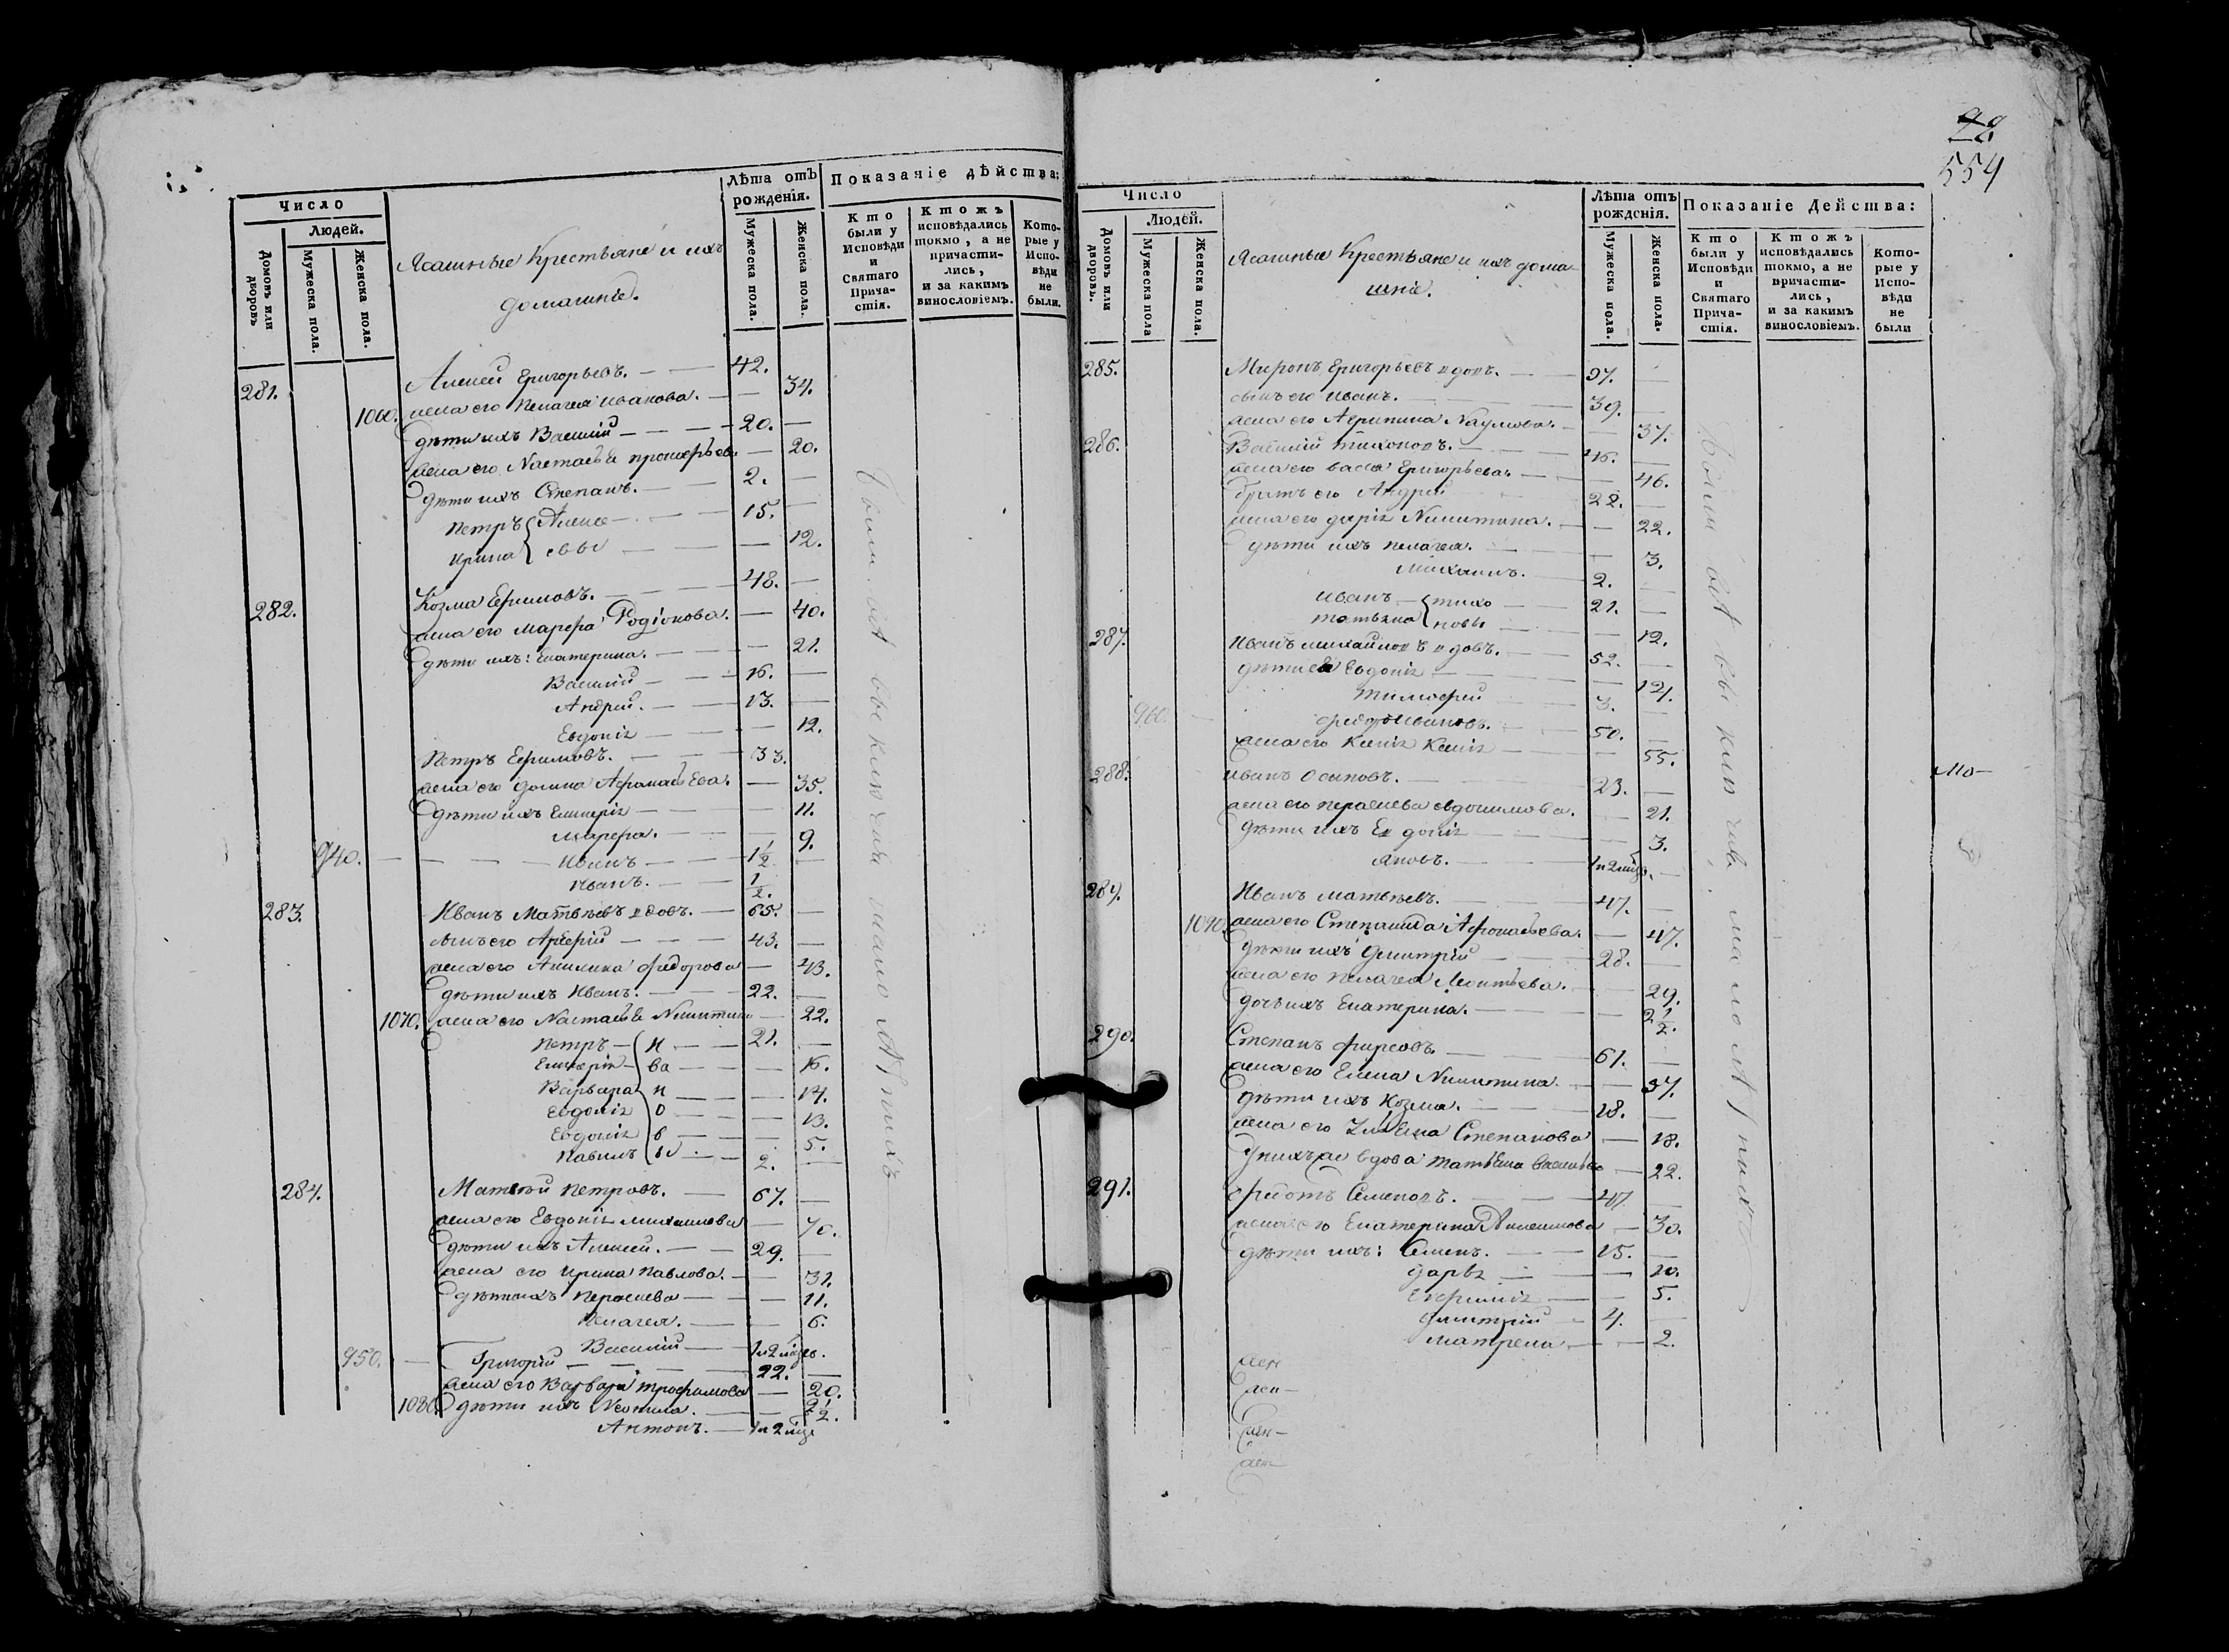 Число
Людей.
Домовъ или дворовъ
Мужеска пола.
Женска пола.
Ясашные Крестьяне и ихъ
домашніе.
Лѣта отъ рожденія.
Мужеска пола.
Женска пола.
Показаніе дѣйства:
Кто были у Исповѣди и Святаго Причастія.
Ктожъ исповѣдались токмо, а не причастились, и за какимъ винословіемъ.
Которые у Исповѣди не были.
281. Алексей Григорьевъ. 42.
жена его Пелагея Иванова. 34.
1060.
дѣти ихъ Василий 20.
жена его Настасья 20.
дѣти ихъ Степанъ. 2.
Петръ Алексе 15.
Ирина евы 12.
282. Козма Ефимовъ. 48.
жена его Марфа Родіонова. 40.
дѣти ихъ: Екатерина. 21.
Василий 16.
Андрей. 13.
Евдокія 12.
Петръ Ефимовъ. 33.
жена его Домна Афонасьева. 35.
дѣти ихъ Гликерія 11.
Марфа. 9.
940. Иванъ 1 1/2
Иванъ. 1/2.
283. Иванъ Матвѣевъ вдовъ. 65.
сынъ его 43.
жена его Акилина Федорова 43.
дѣти ихъ Иванъ. 22.
1070. жена его Настасья Никитина 22.
Петръ И 21.
Гликерія ва 16.
Варвара н 14.
Евдокія о 13.
Евдокія в 5.
Павилъ ы 2.
284. Матвѣй Петровъ. 67.
жена его Евдокія Михаилова 70.
дѣти ихъ Алексей. 29.
жена его Ирина Павлова. 31.
дѣти ихъ Параскева 11.
Пелагея. 6.
Василий 1 и 2 мѣсъ.
950. Григорій 22.
жена его Варвара Трофимова 20.
1080. дѣти ихъ 2 1/2.
Антонъ. 1 и 2 мѣс
Были всѣ вы ключая мало лѣтнихъ
98
554
Число
Людей.
Домовъ или дворовъ.
Мужеска пола
Женска пола.
Ясашные Крестьяне и ихъ дома-
шніе.
Лѣта отъ рожденія.
Мужеска пола.
Женска пола.
Показаніе Действа:
Кто были у Исповѣди и Святаго Причастія.
Ктожъ исповѣдались токмо, а не причастились, и за какимъ винословіемъ.
Которые у Исповѣди не были
285. Миронъ Григорьевъ вдовъ. 97.
сынъ его Иванъ. 39.
жена его Агрипина Наумова. 37.
286. Василий Тихоновъ. 46.
жена его Васса Григорьева. 46.
братъ его Андрей 22.
жена его Дарія Никитина. 22.
дѣти ихъ Пелагея. 3.
Михаилъ. 2.
Иванъ тихо 21.
Татьяна новы 12.
287. Иванъ Михайловъ вдовъ. 52.
дѣти Евдокія 14.
Тимофей 3.
960. Федоръ Ивановъ. 50.
жена его Ксенія Ксенія 55.
288. Иванъ Осиповъ. 23.
жена его Парасева Евдокимова. 21.
дѣти ихъ Евдокія 3.
Яковъ. 1 и 2 мѣс.
289. Иванъ Матвѣевъ. 47.
1090. жена его Степанида Афонасьева. 47.
дѣти ихъ Димитрій 28.
жена его Пелагея Леонтьева. 29.
дочь ихъ Екатерина. 2 1/2.
290. Степанъ Фирсовъ. 61.
жена его Елена Никитина. 57.
дѣти ихъ Козма. 18.
жена его Степанова 18.
У нихъ же вдова Татьяна 22.
291. Федотъ Семеновъ. 47
жена его Екатерина 30.
дѣти ихъ: Семенъ. 15.
Дарья 10.
Евфимія 5.
Димитрій 4.
Матрена 2.
жен
жен
жен
жен
Были всѣ вы ключая мало лѣтнихъ